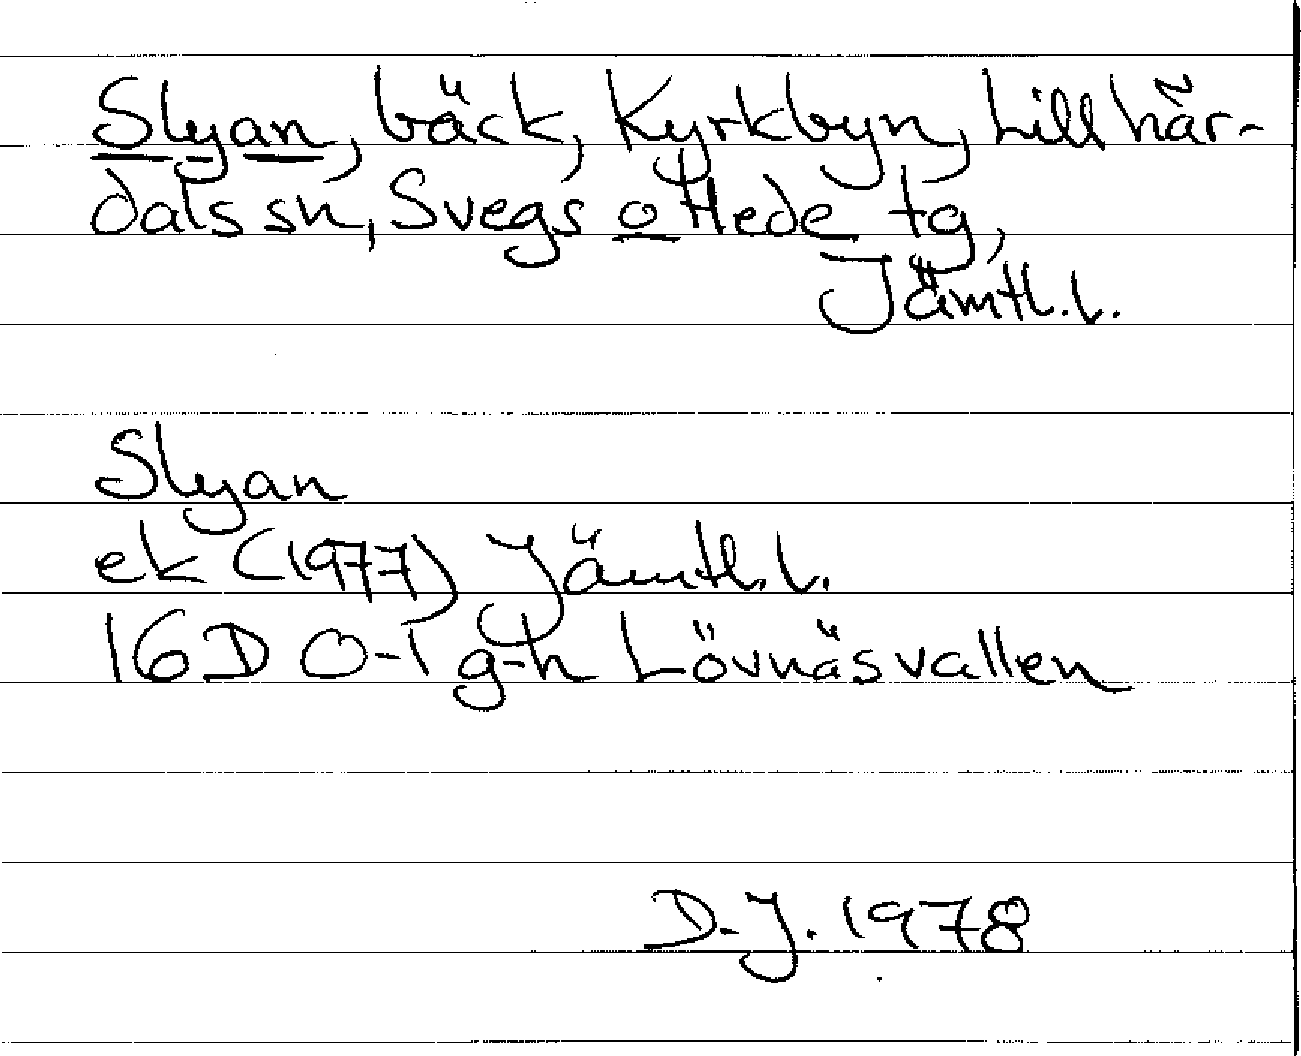 Slyan, bäck, Kyrkbyn, Lillhär-
dals sn, Svegs o Hede tg,
Jämtl. l.
Slyan
ek (1977) Jämtl. l.
16D 0-1 g-h Lövnäsvallen
D.J. 1978